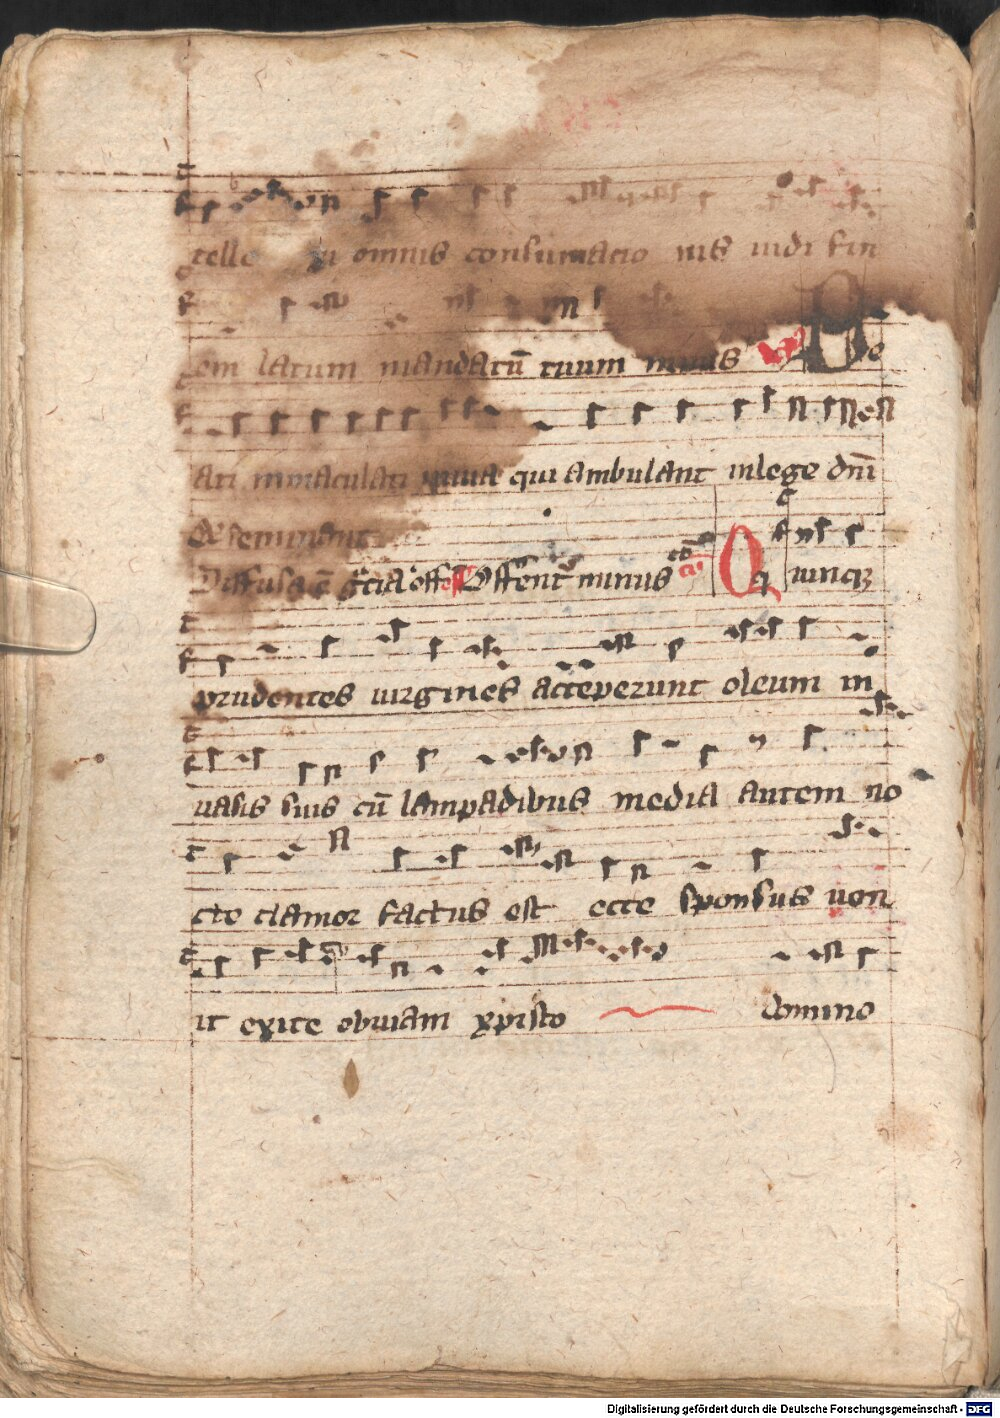 telle omnis consumacio nis uidi fin
em latum mandatū tuum nimis Be
ati inmaculati in uia qui ambulant inlege dn̄i
Diffusa ē gr̄cia off Offent̄ minus co
Qq uinqȝ
prudentes uirgines acceperunt oleum in
uasis suis cū lampadibus media autem no
cte clamor factus est ecce sponsus uen
it exite obuiam xpisto domino
Digitalisierung gefördert durch die Deutsche Forschungsgemeinschaft - DFG